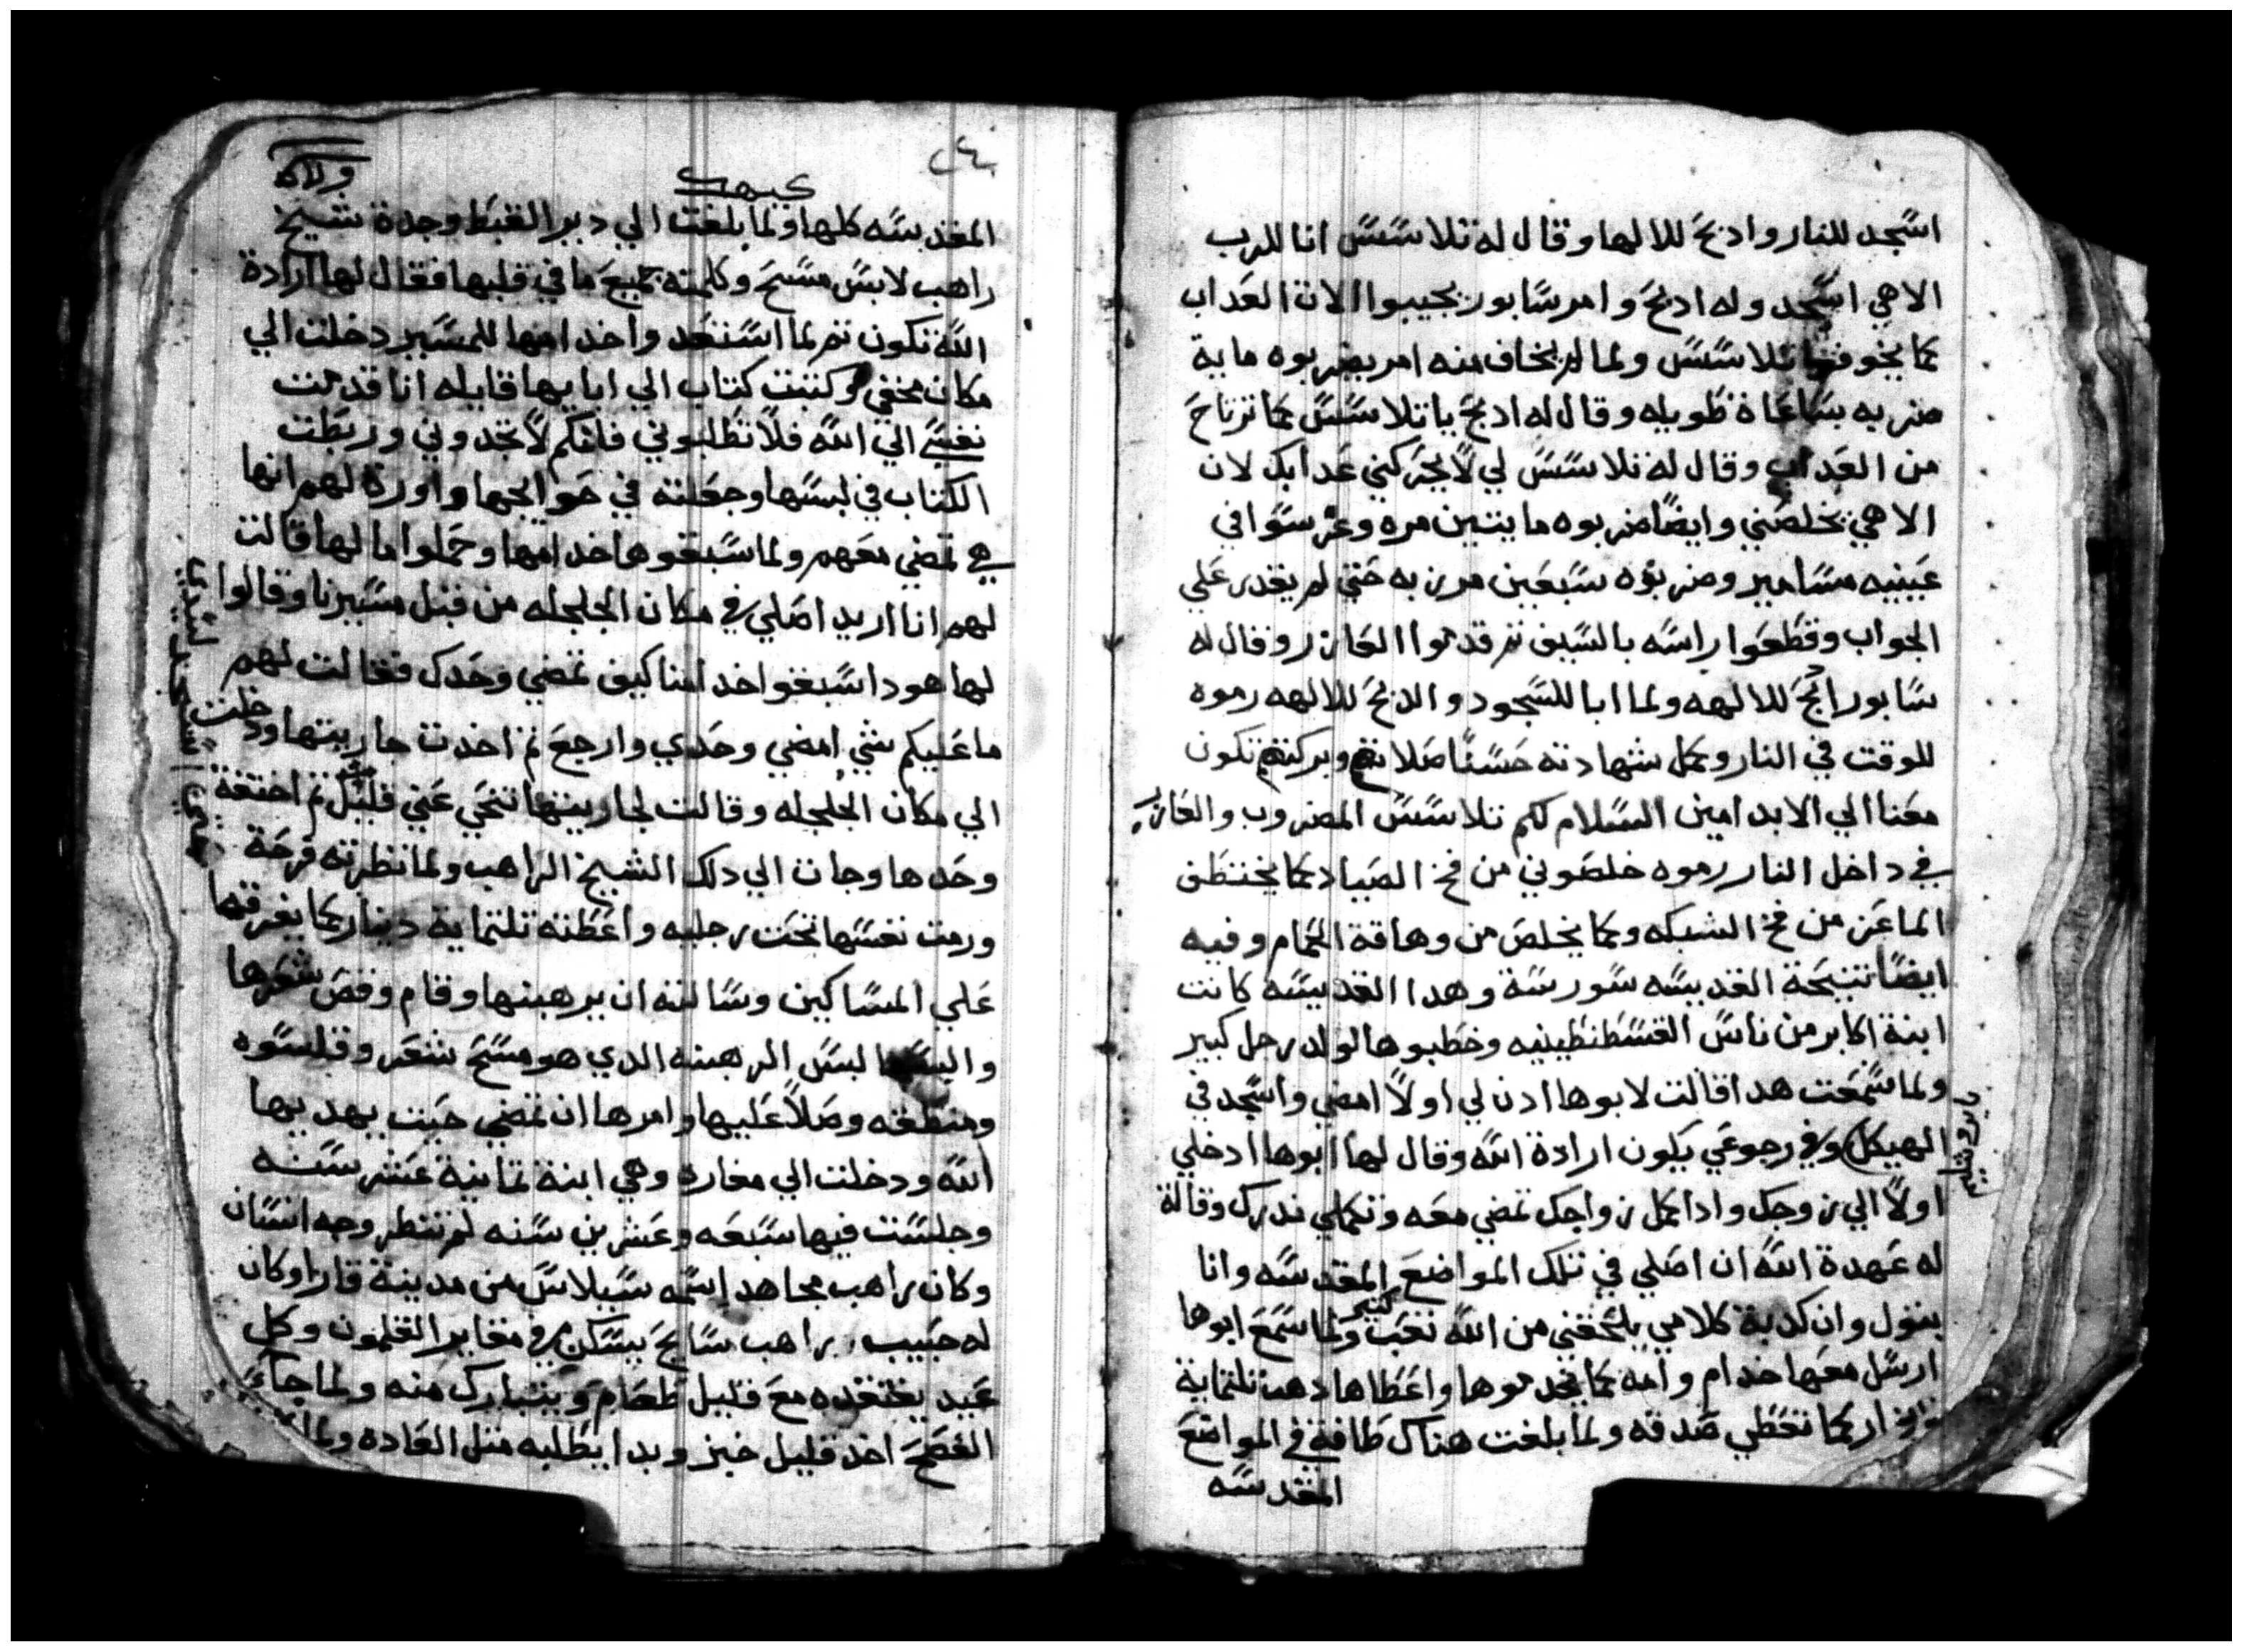 اسجد للنار وادبح للالها وقال له تلاسس انا للرب
الاهي اسجد وله ادبح وامر سابور يجيبوا الات العداب
كما يخوفها تلاسس ولما لم يخاف منه امر يضربوه ماية
ضربه بساعاة طويله وقال له ادبح يا تلاسس كما ترتاح
من العداب وقال له تلاسس لي لا يحركني عدابك لان
الاهي يخلصني وايضا ضربوه مايتين مره وغرسوا في
عينيه مسامير وضربوه سبعين مرزبه حتي لم يقدر علي
الجواب وقطعوا راسه بالسيف تم قدموا العازر وقال له
سابور ادبح للالهه ولما ابا للسجود والدبح للالهه رموه
للوقت في النار وكمل شهادته حسنا صلاتهم وبركتهم تكون
معنا الي الابد امين السلام لكم تلاسس المضروب والعازر
في داخل النار رموه خلصوني من فخ الصياد كما يختطف
الماعز من فخ الشبكه وكما يخلص من وهاقة الحمام وفيه
ايضا تنيحة القديسه سورسة وهدا القديسه كانت
ابنة اكابر من ناس القسطنطينيه وخطبوها لولد رجل كبير
ولما سمعت هدا قالت لابوها ادن لي اولا امضي واسجد في
الهيكل وفي رجوعي يكون ارادة الله وقال لها ابوها ادخلي
يروشليم
اولا الي زوجك وادا كمل زواجك تمضي معه وتكملي ندرك وقالة
له عهدة الله ان اصلي في تلك المواضع المقدسه وانا
بتول وان كدبة كلامي يلحقني من الله تعب كتير ولما سمع ابوها
ارسل معها خدام وامه كما يخدموها واعطاها دهب تلتماية
دينار كما تعطي صدقه ولما بلغت هناك طافة في المواضع
المقدسه
كيهك
المقدسه كلها ولما بلغت الي دير القبط وجدة شيخ
راهب لابس مسح وكلمته بجميع ما في قلبها فقال لها ارادة
الله تكون تم لما استعد واخدامها للمسير دخلت الي
مكان مخفي وكتبت كتاب الي ابايها قايله انا قدمت
نفسي الي الله فلا تطلبوني فانكم لا تجدوني وربطت
الكتاب في لبسها وجعلته في حوايجها واورة لهم انها
هي تمضي معهم ولما سبقوها خدامها وحملوا مالها قالت
لهم انا اريد اصلي في مكان الجلجله من قبل مسيرنا وقالوا
لها هودا سبقوا خدامنا كيف تمضي وحدك فقالت لهم
ما عليكم شي امضي وحدي وارجع تم اخدت جاريتها ودخلت
الي مكان الجلجله وقالت لجاريتها تنحي عني قليل تم اختفة
وحدها وجات الي دلك الشيخ الراهب ولما نظرته فرحة
ورمت نفسها تحت رجليه واعطته تلتماية دينار كما يفرقها
علي المساكين وسالته ان يرهبنها وقام وقص شعرها
والبسها لبس الرهبنه الدي هو مسح شعر وقلسوه
ومنطقه وصلا عليها وامرها ان تمضي حيت يهديها
الله ودخلت الي مغاره وهي ابنة تمانية عشر سنه
وجلست فيها سبعه وعشرين سنه لم تنظر وجه انسان
وكان راهب مجاهد اسمه سيلاس من مدينة قارا وكان
له حبيب راهب سايح يسكن في مغاير القلمون وكل
عيد يفتقده مع قليل طعام ويتبارك منه ولما جاء
الفصح اخد قليل خبز وبدا يطلبه متل العاده ولما